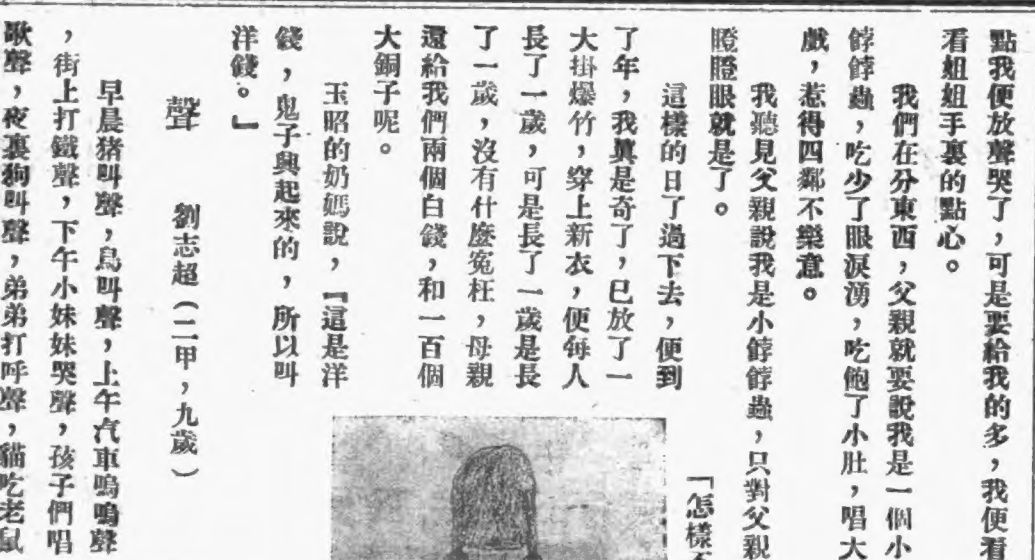 點我便放聲哭了，可是要給我的多，我便看
看姐姐手裏的點心。
我們在分東西，父親就要說我是一個小
餑餑蟲，吃少了眼淚湧，吃飽了小肚，唱大
戲，惹得四鄰不樂意。
我聽見父親說我是小餑餑蟲，只對父親
瞪瞪眼就是了。
這樣的日了過下去，便到
了年，我真是奇了，已放了一
大掛爆竹，穿上新衣，便每人
長了一歲，可是長了一歲是長
了一歲，沒有什麼寃枉，母親
還給我們兩個白錢，和一百個
大銅子呢。
玉昭的奶媽說，「這是洋
錢，鬼子興起來的，所以叫
洋錢。」
「怎樣
聲　劉志超（二甲，九歲）
早晨猪叫聲，鳥叫聲，上午汽車嗚嗚聲
，街上打鐵聲，下午小妹妹哭聲，孩子們唱
歌聲，夜裏狗叫聲，弟弟打呼聲，貓吃老鼠